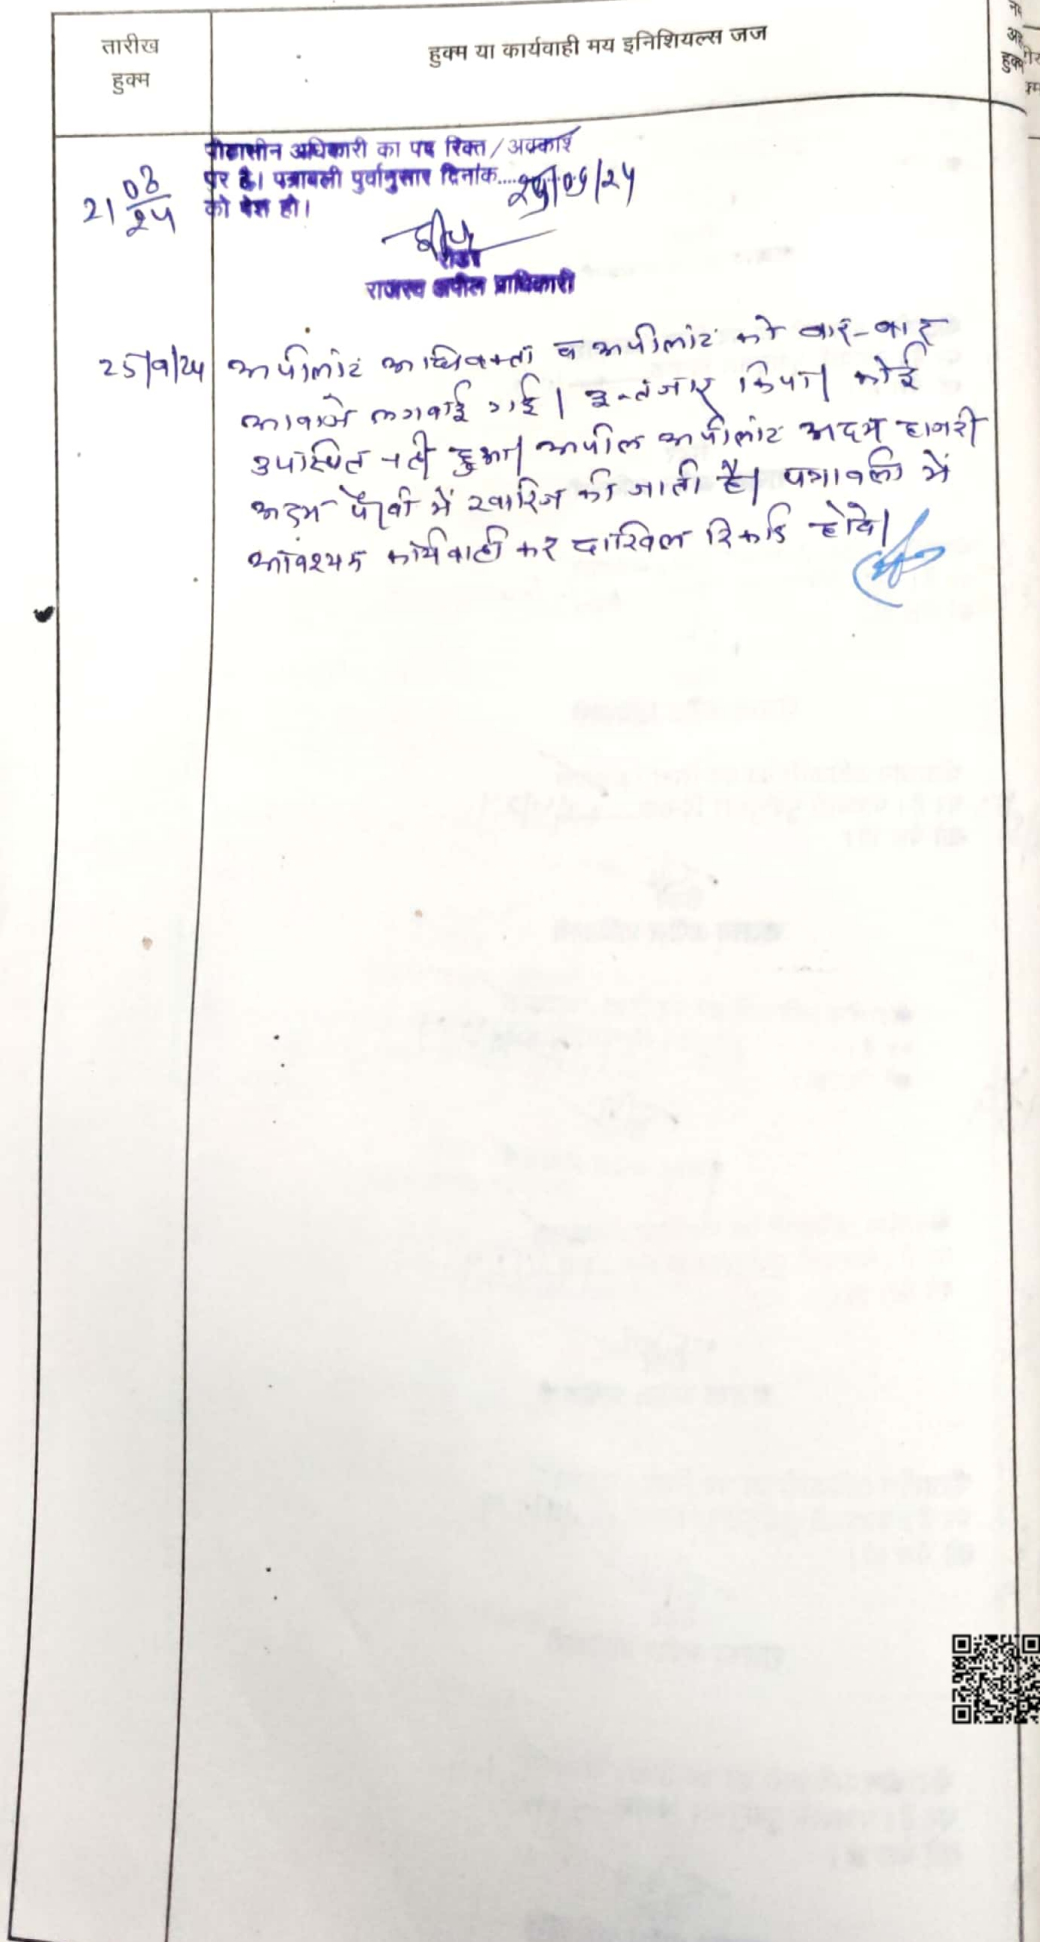 तारीख
हुक्म
हुक्म या कार्यवाही मय इनिशियल्स जज
पीठासीन अधिकारी का पद रिक्त/अवकाश
पर है। पत्रावली पुर्वानुसार दिनांक.....25/09/24
को पेश हो।
21 08/24
रीडर
राजस्व अपील प्राधिकारी
25/9/24 अपीलांट अधिवक्ता व अपीलांट को बार-बार
आवाजे लगवाई गई। इन्तजार किया। कोई
उपस्थित नही हुआ। अपील अपीलांट अदम हाजरी
अदम पैरवी में खारिज की जाती है। पत्रावली में
आवश्यक कार्यवाही कर दाखिल रिकार्ड होवे।